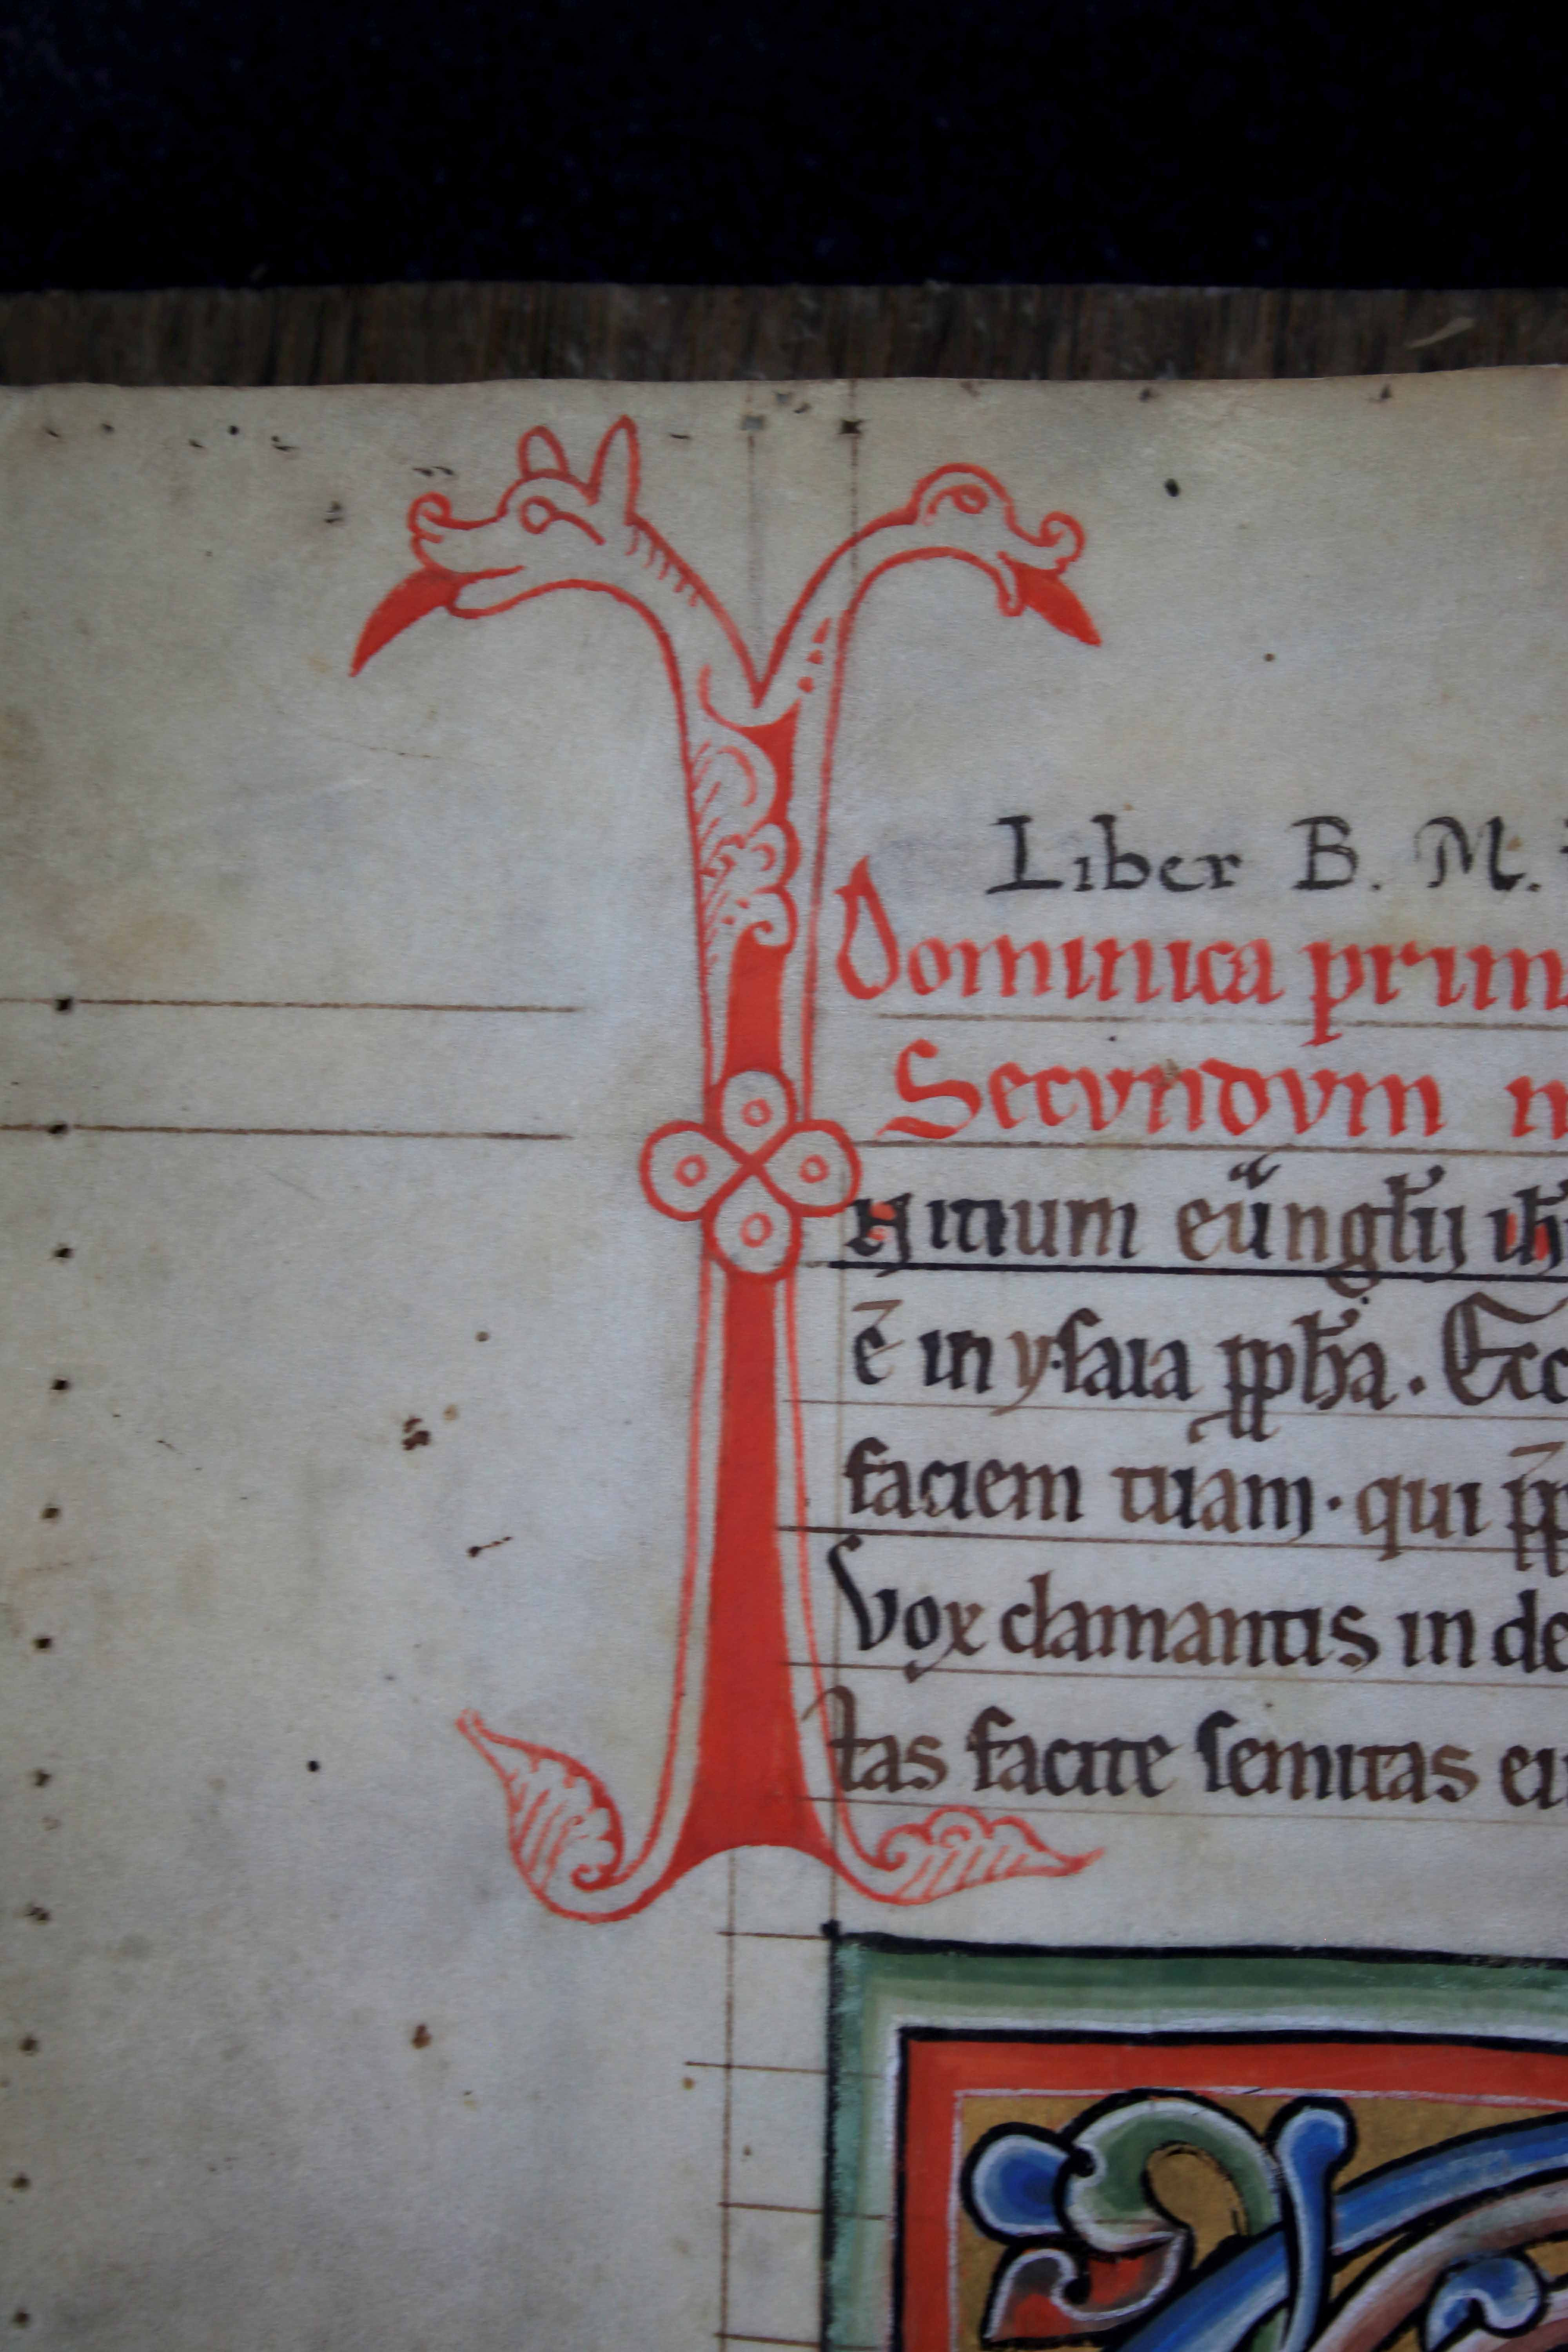 Liber B. M.
Dominica prim
Secundum m
Initium eūngły ih
ē in ysaia ppha. Ecc
faciem tuam· qui pp̄
Vox clamantis in de
tas facite semitas eiu